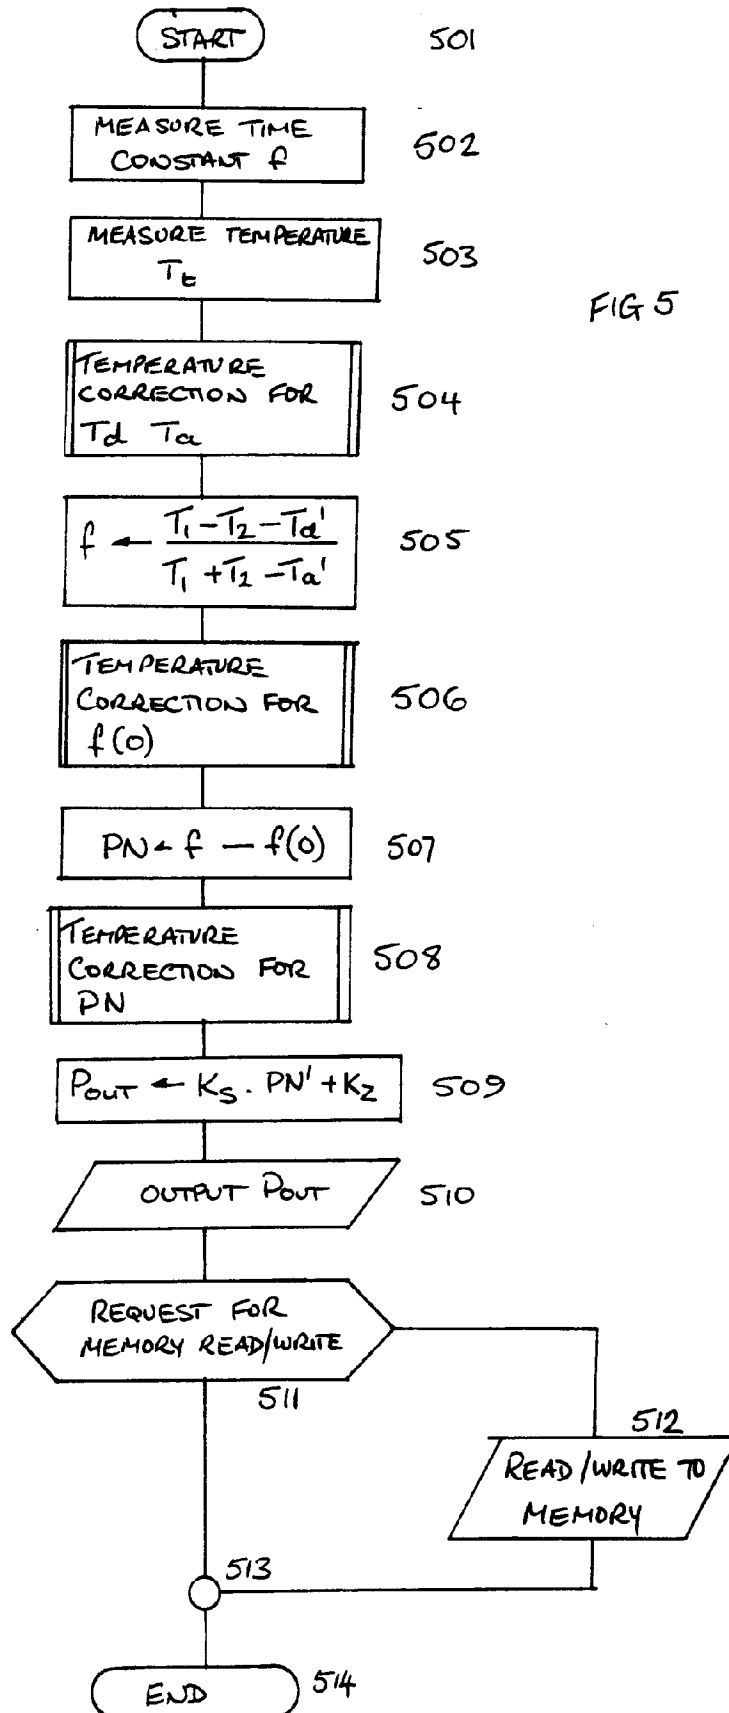 START 501
MEASURE TIME
CONSTANT f 502
MEASURE TEMPERATURE
Tt 503
FIG 5
TEMPERATURE
CORRECTION FOR
Td Ta 504
f ← (T1 - T2 - Td') / (T1 + T2 - Ta') 505
TEMPERATURE
CORRECTION FOR
f(0) 506
PN ← f - f(0) 507
TEMPERATURE
CORRECTION FOR
PN 508
POUT ← KS . PN' + KZ 509
OUTPUT POUT 510
REQUEST FOR
MEMORY READ/WRITE
511
512
READ/WRITE TO
MEMORY
513
END 514